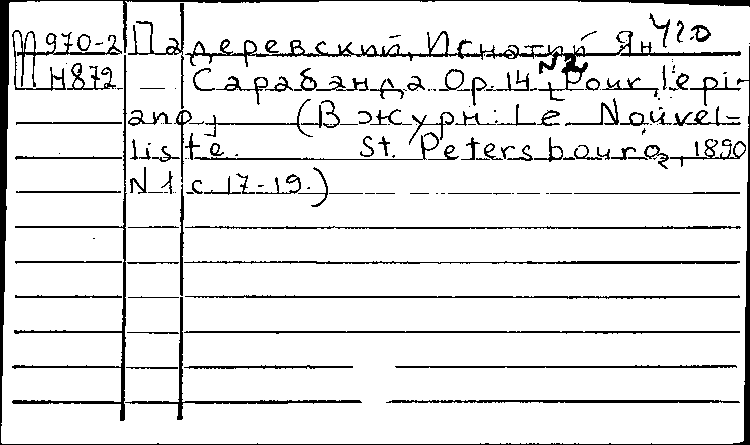 М970-2 Падеревский, Игнатий Ян 420
Н872 Сарабанда Op. 14 №2 [Pour le pi-
ano] (В журн: Le Nouvel=
liste. St. Petersbourg, 1890
N 1 с. 17-19.)